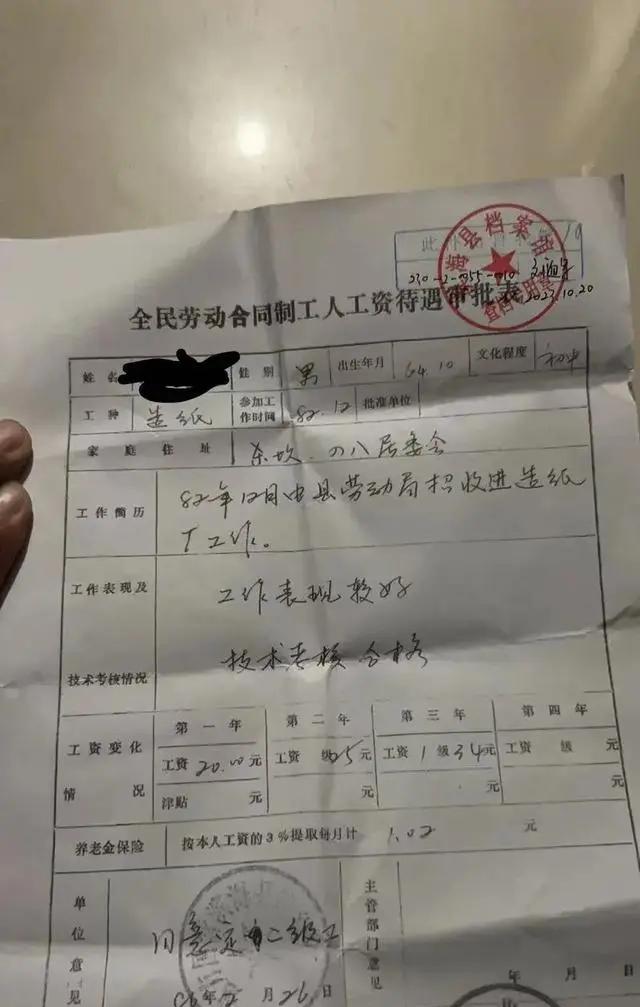 海县档案馆
查档专用章
230-2-0055-010
2023.10.20
全民劳动合同制工人工资待遇审批表
姓名 性别 男 出生年月 64.10 文化程度 初中
工种 造纸 参加工作时间 82.12 批准单位
家庭住址 东坎 四八居委会
工作简历 82年12月由县劳动局招收进造纸
厂工作。
工作表现及 工作表现较好
技术考核情况 技术考核合格
工资变化情况 第一年 第二年 第三年 第四年
工资 20.00元 工资 级 25元 工资 1级 34元 工资 级 元
津贴 元 元 元 元
养老金保险 按本人工资的3%提取每月计 1.02 元
单位意见 同意定为二级工 主管部门意见
86年2月26日 年 月